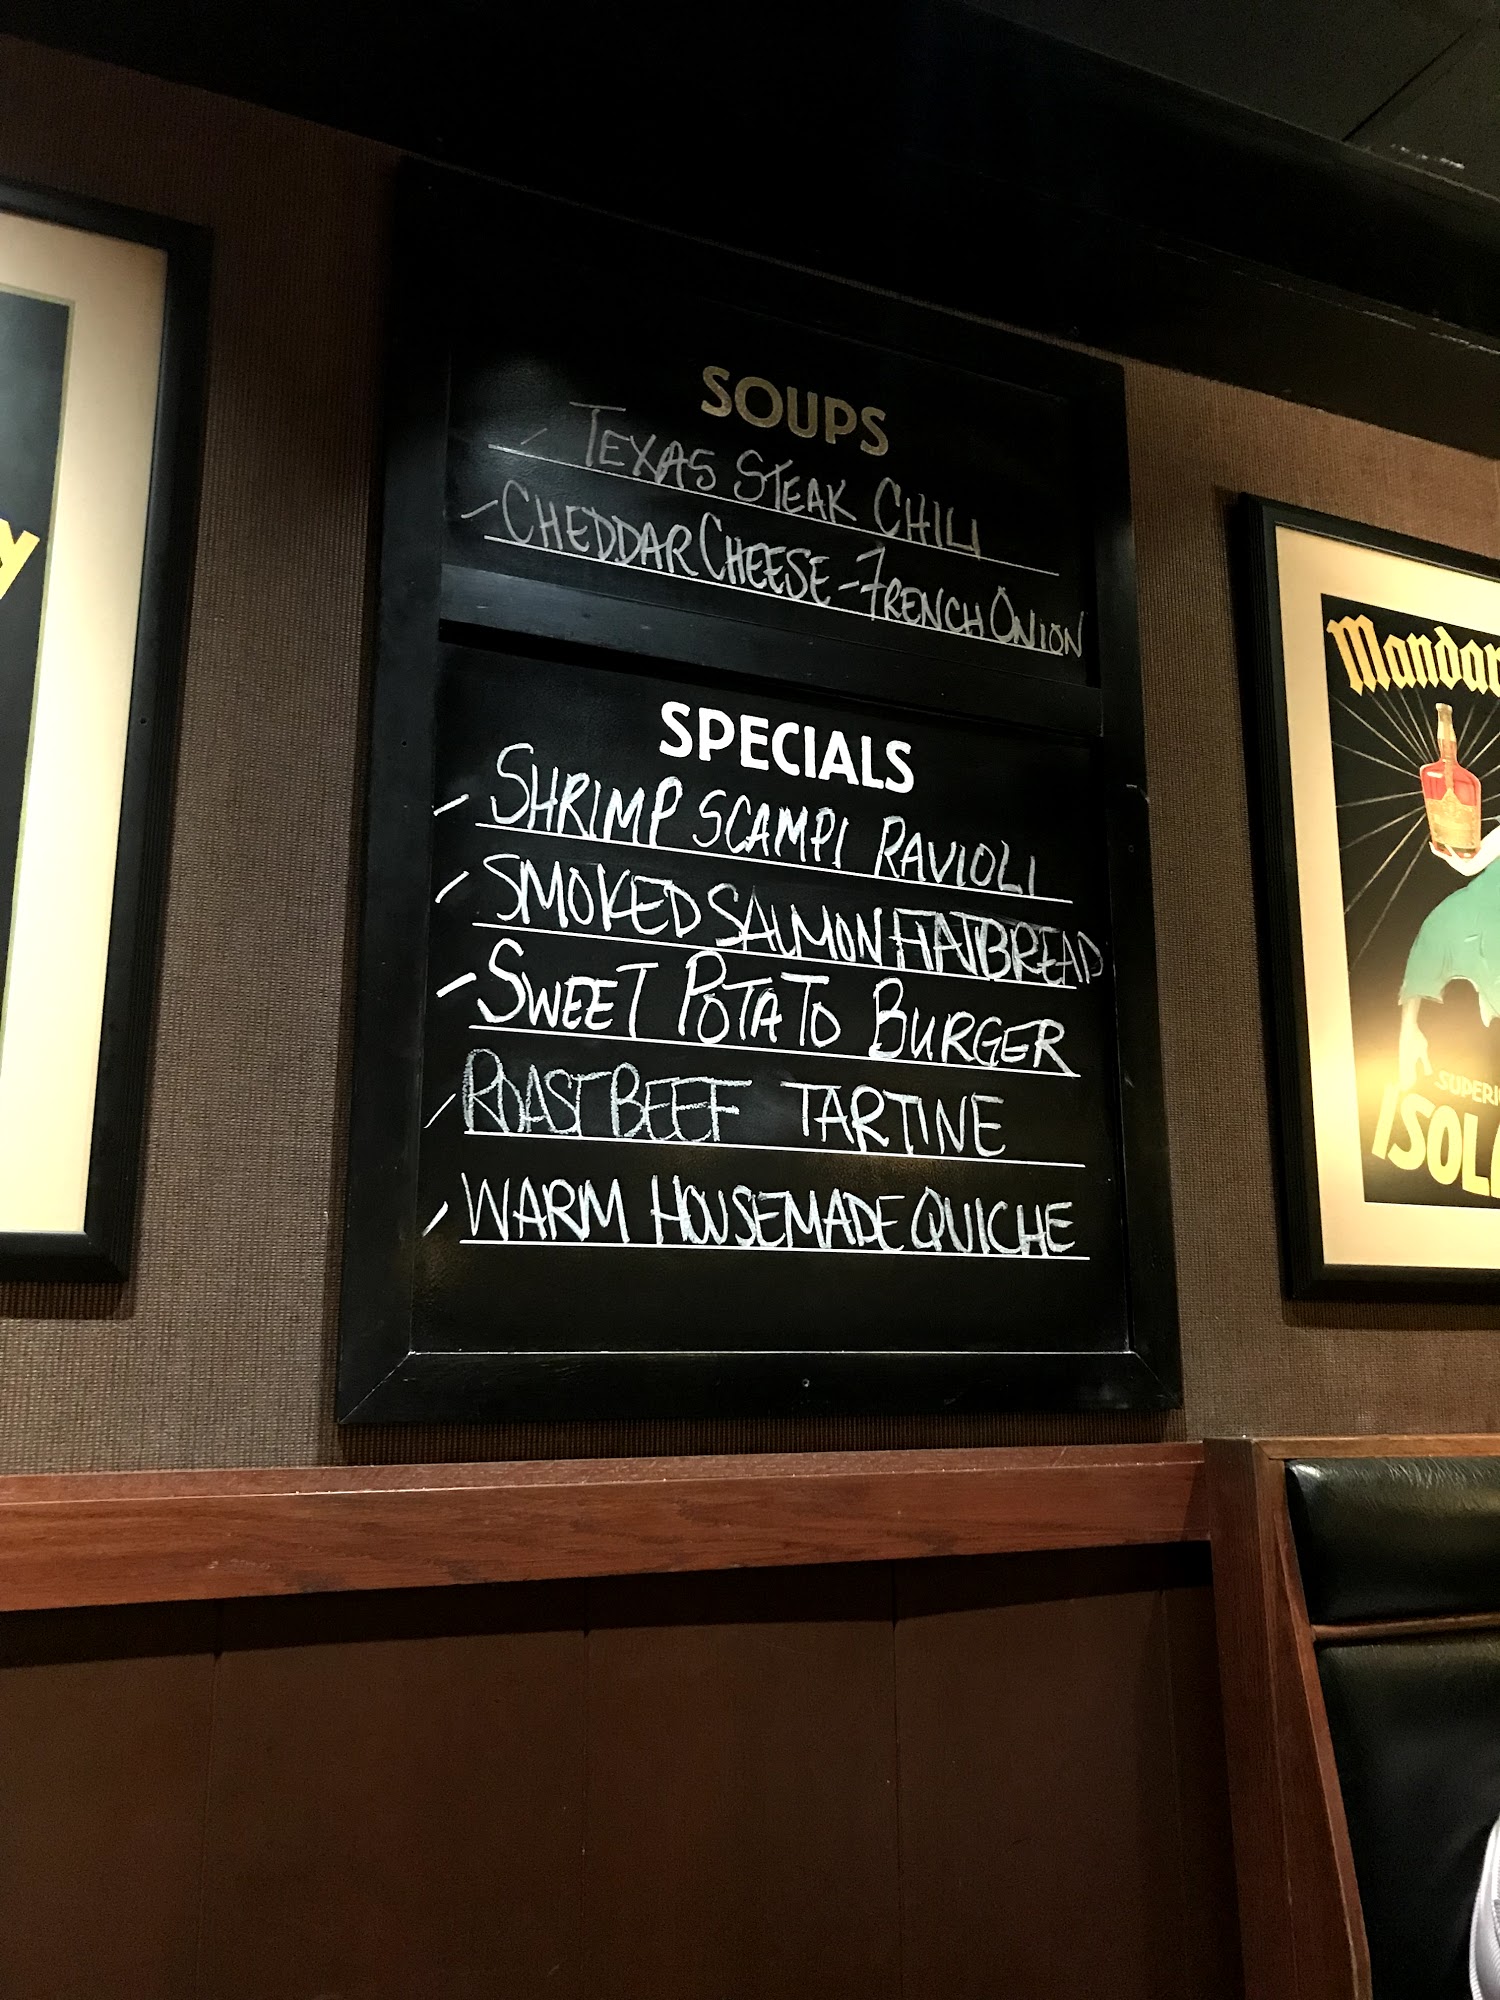 SOUPS
- TEXAS STEAK CHILI
- CHEDDAR CHEESE - FRENCH ONION
SPECIALS
- SHRIMP SCAMPI RAVIOLI
- SMOKED SALMON FLATBREAD
- SWEET POTATO BURGER
- ROAST BEEF TARTINE
- WARM HOUSEMADE QUICHE
y
Mandar
SUPERI
ISOLA